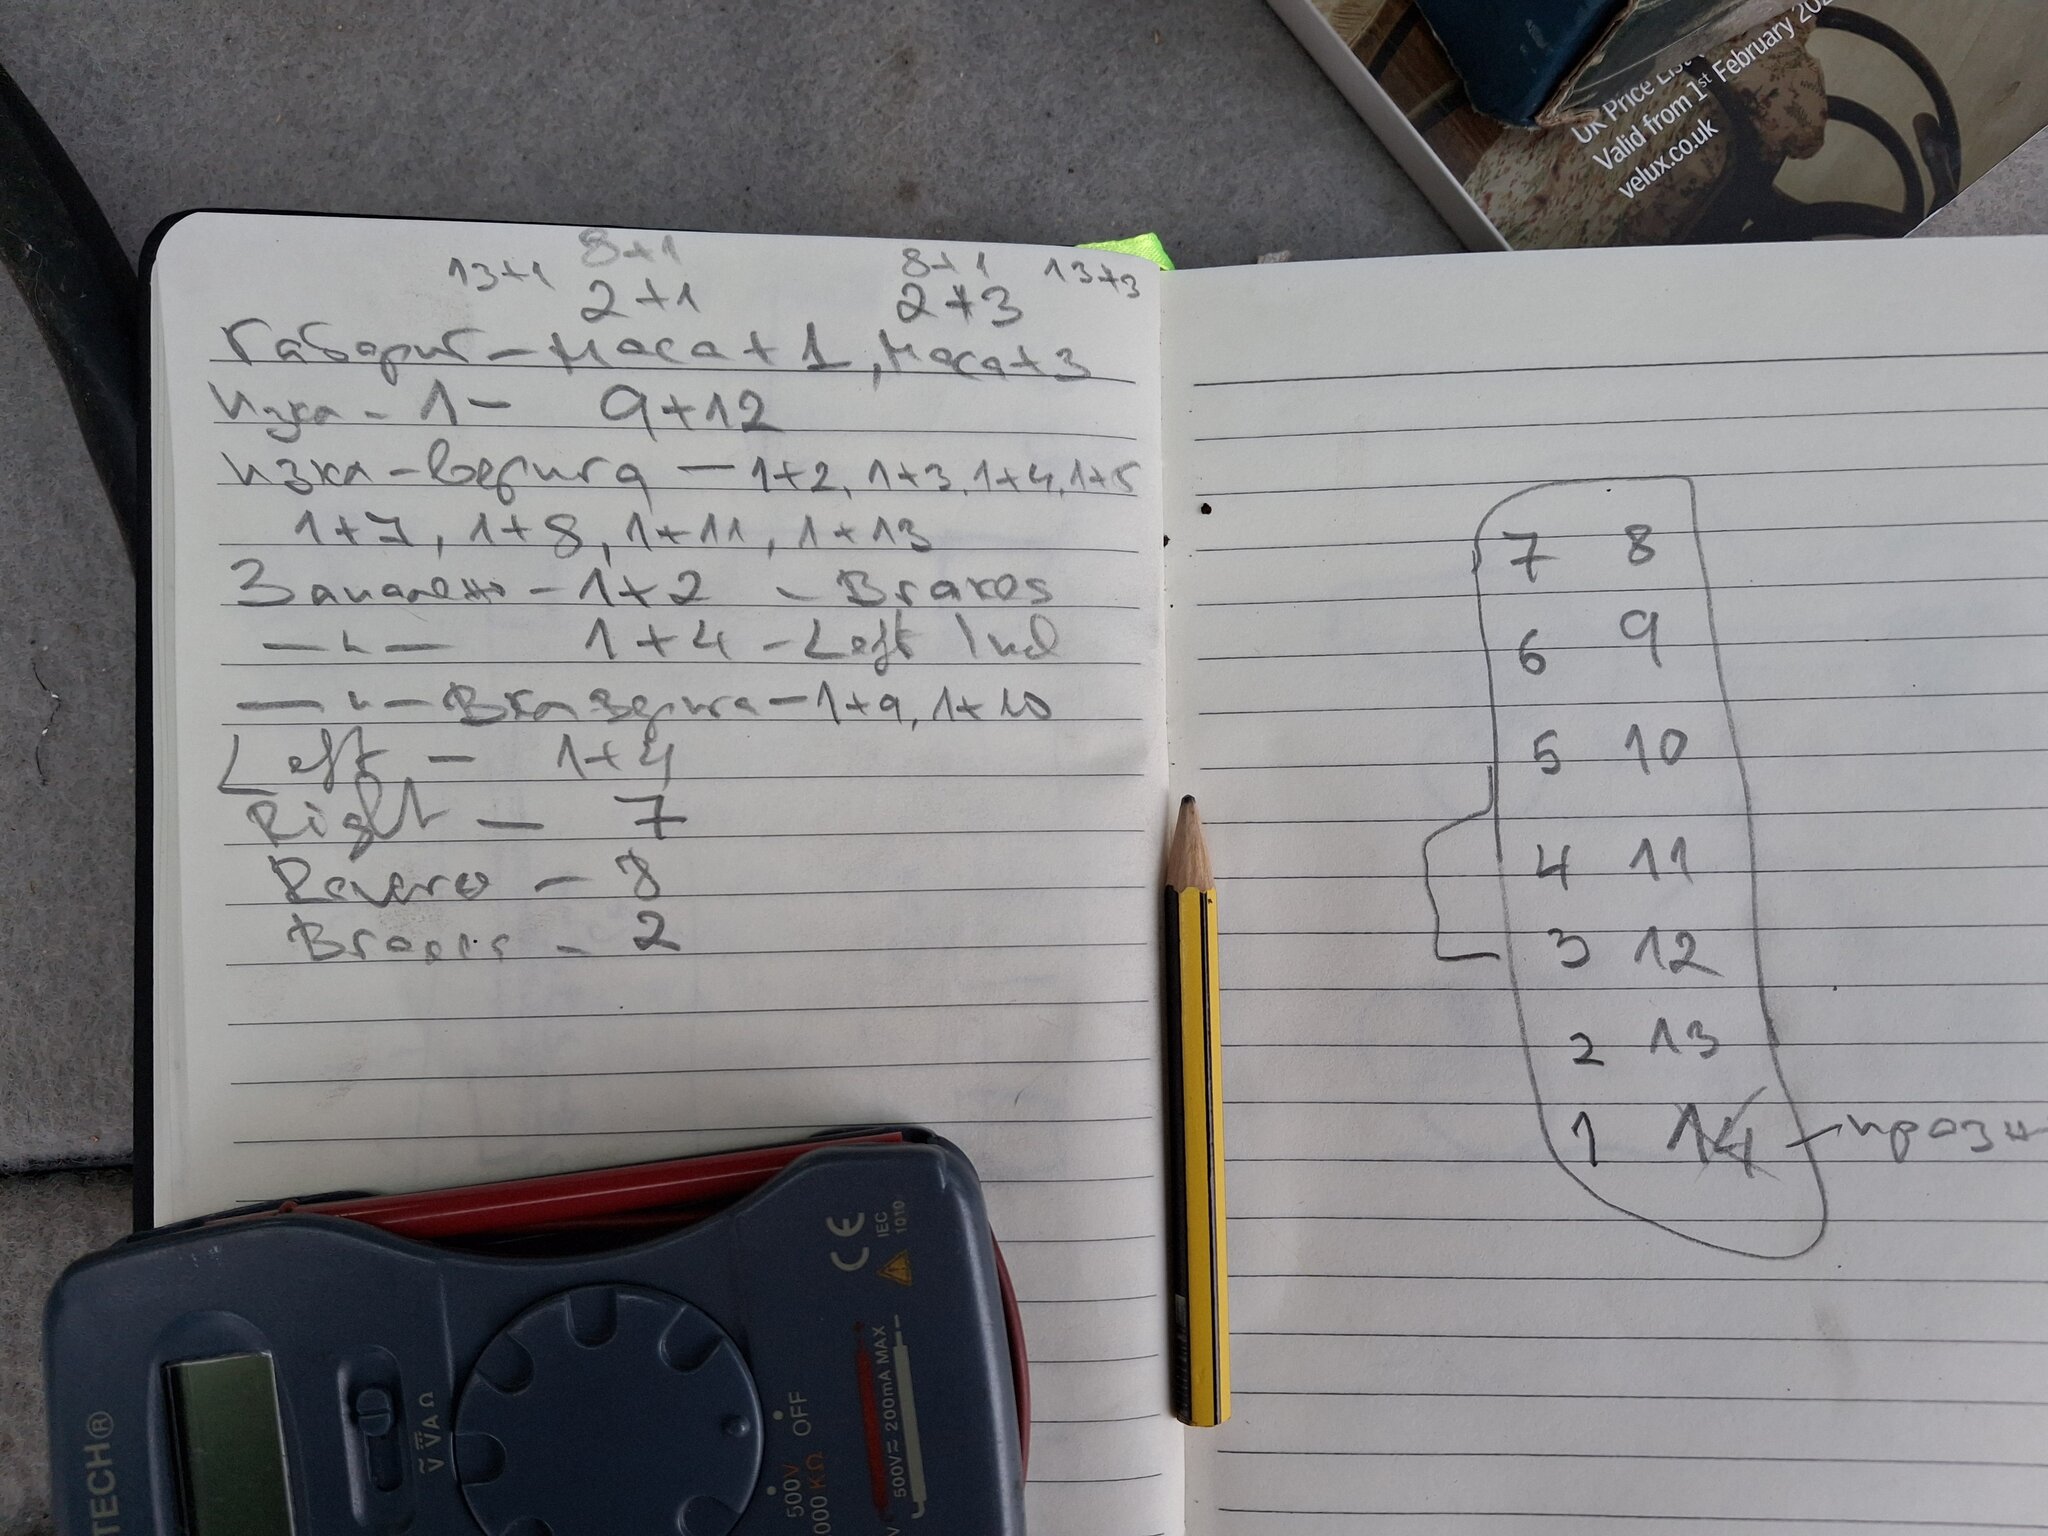 13+1 8+1 8+1 13+3
2+1 2+3
Габарит - маса + 1, маса + 3
Изкл - 1 - 9+12
Изкл - верига - 1+2, 1+3, 1+4, 1+5
1+7, 1+8, 1+11, 1+13
Запалено - 1+2 - Brakes
— " — 1+4 - Left Ind
— " — Вкл верига - 1+9, 1+10
Left - 1+4
Right - 7
Reverse - 8
Brakes - 2
7 8
6 9
5 10
4 11
3 12
2 13
1 14 - празн
UK Price List
Valid from 1st February
velux.co.uk
TECH®
V VA Ω
500V OFF
500V 200mA MAX
CE IEC 1010